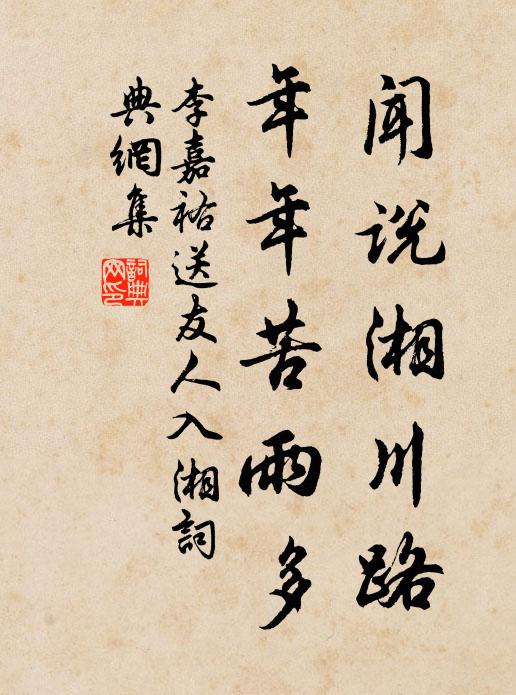 闻说湘川路
年年苦雨多
李嘉祐送友人入湘詞
典網集
詞典网印